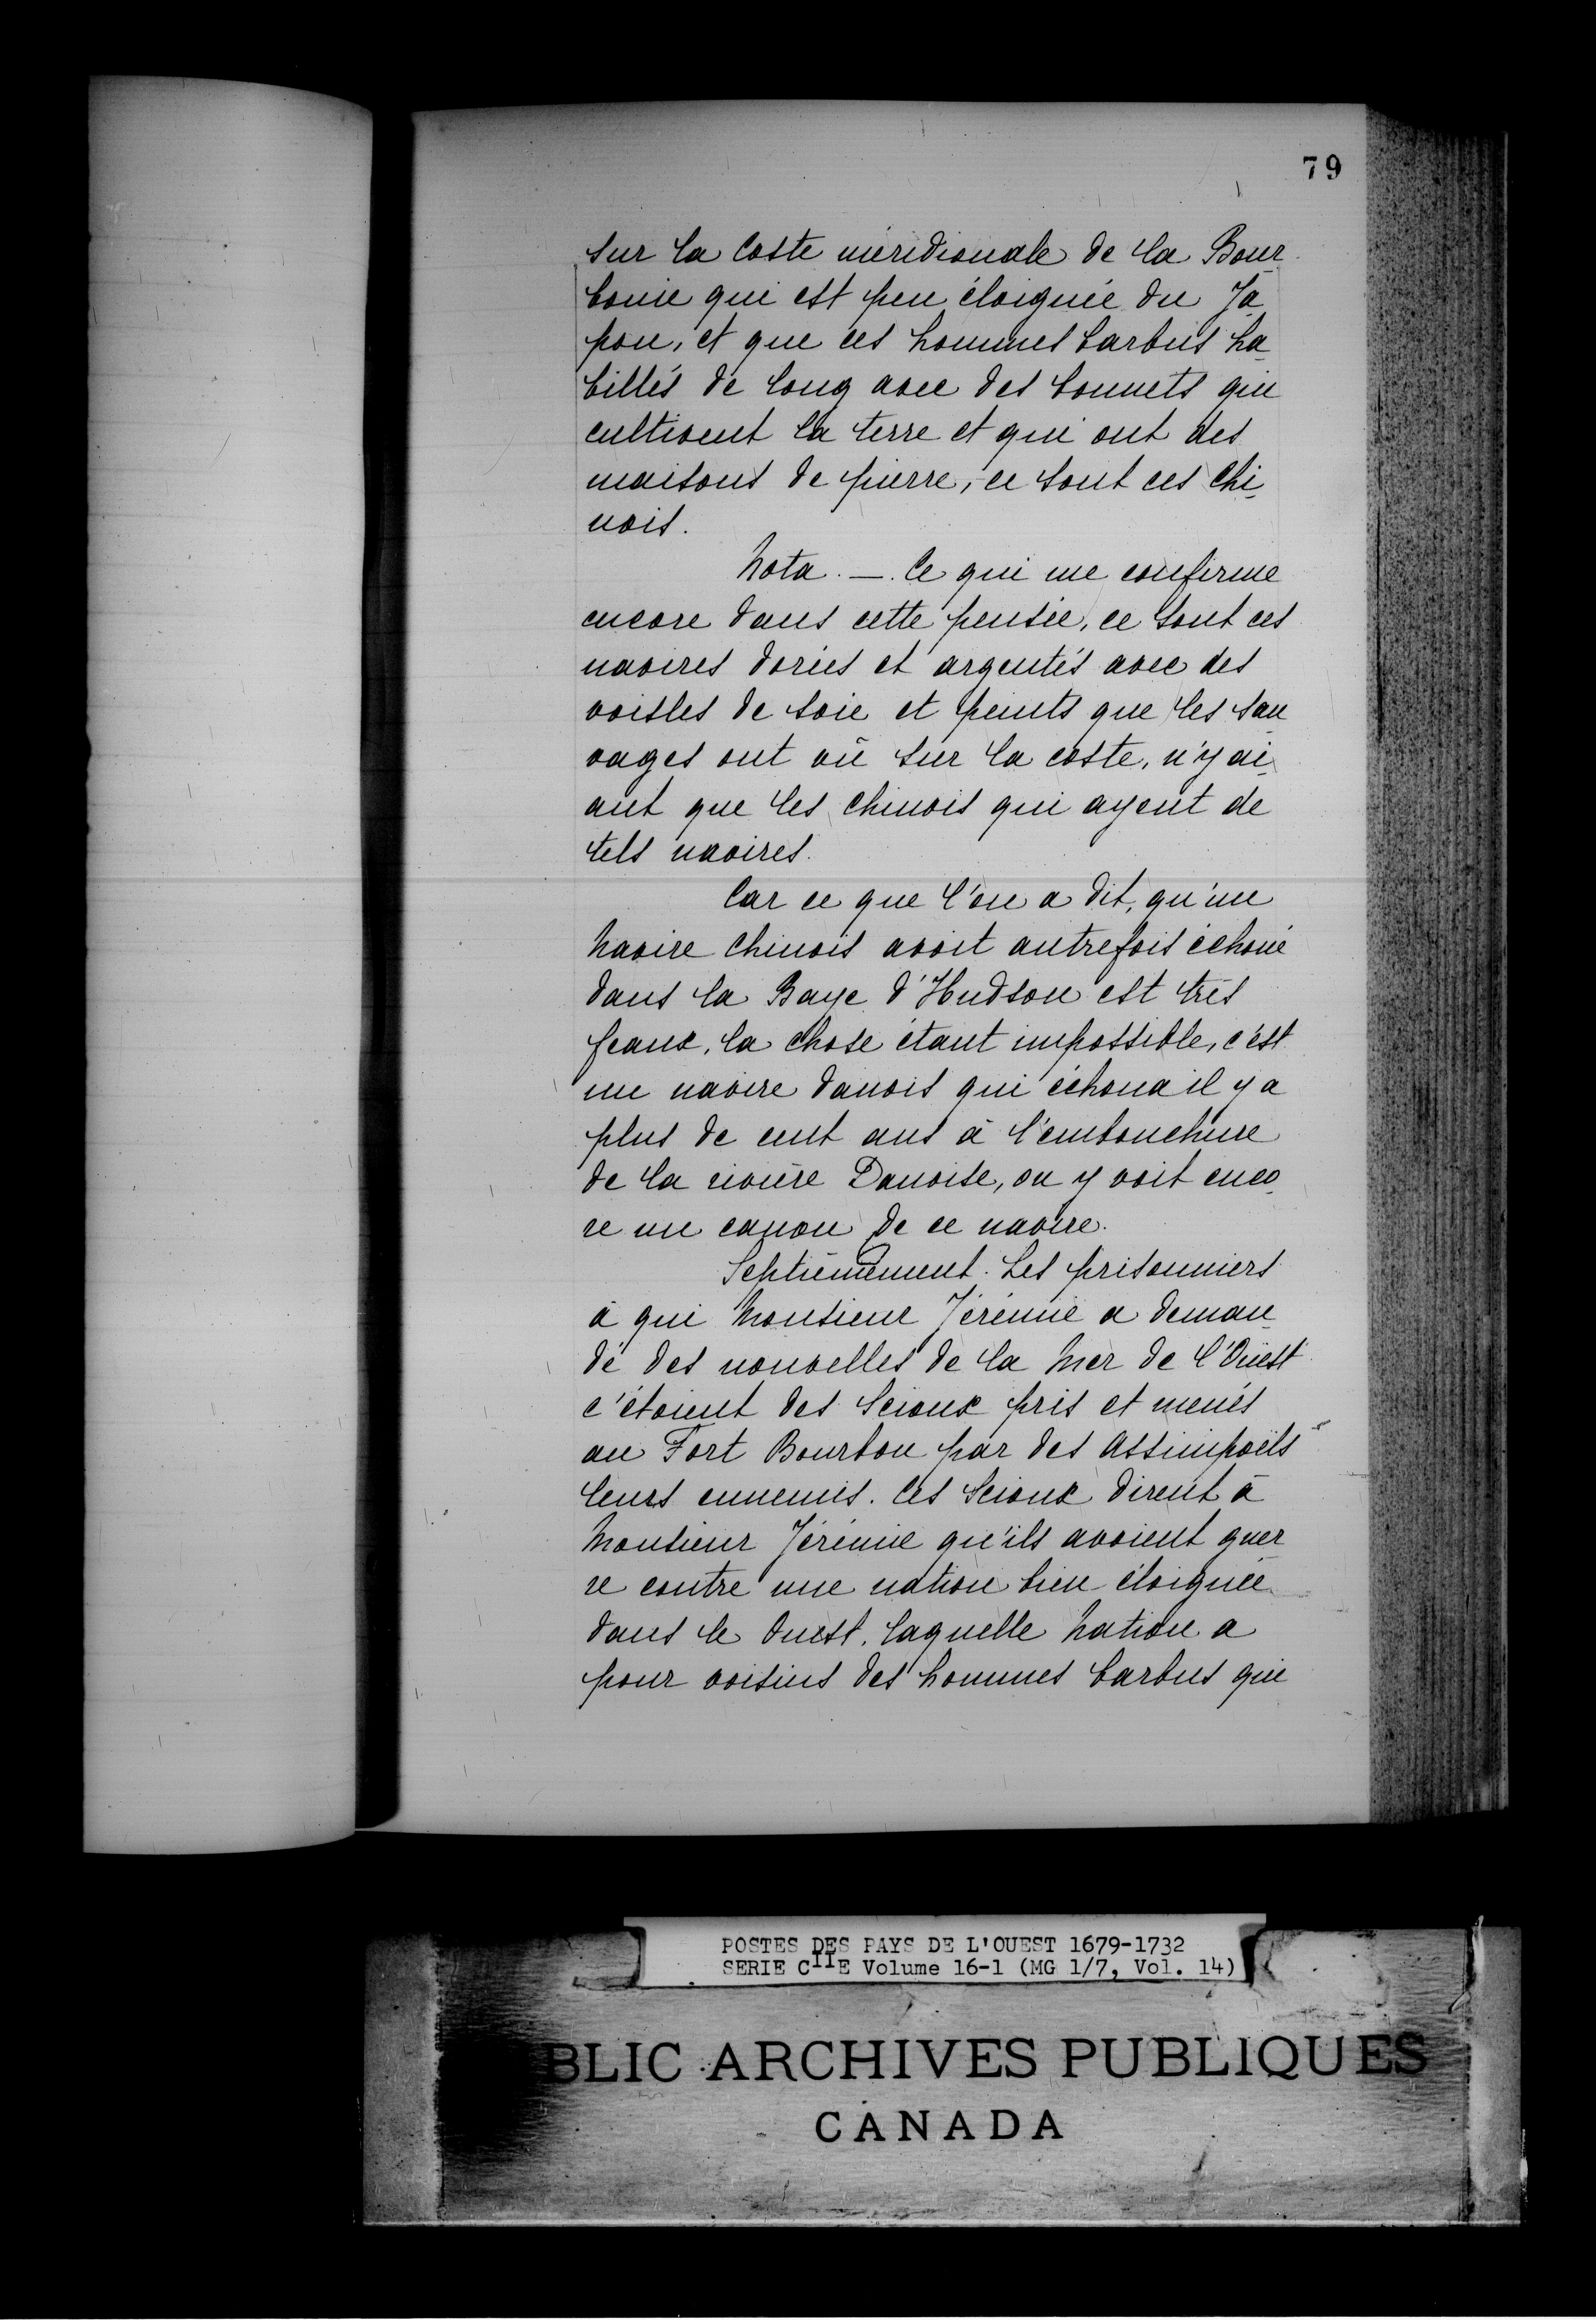 79
sur la Coste méridionale de la Bour
bonie qui est peu éloignée du Ja
pon, et que ces hommes barbus ha
billés de long avec des bonnets qui
cultivent la terre et qui ont des
maisons de pierre, ce sont ces Chi
nois.
Nota. — Ce qui me confirme
encore dans cette pensée, ce sont ces
navires dorées et argentés avec des
voisles de soie et peints que les sau
vages ont vû sur la coste, n'y ai
ant que les Chinois qui ayent de
tels navires.
Car ce que l'on a dit, qu'un
Navire Chinois avoit autrefois échoué
dans la Baye d'Hudson est très
feaux, la chose étant impossible, c'est
un navire danois qui échoua il y a
plus de cent ans à l'embouchure
de la rivière Danoise, on y voit enco
re un canon de ce navire.
Septièmement. Les prisonniers
à qui Monsieur Jérémie a deman
dé des nouvelles de la Mer de l'Ouest
c'étoient des Scioux pris et menés
au Fort Bourbon par des Assimpoëls
leurs ennemis. Ces Scioux dirent à
Monsieur Jérémie qu'ils avoient guer
re contre une nation bien éloignée
dans le Ouest, laquelle Nation a
pour voisins des hommes barbus qui
POSTES DES PAYS DE L'OUEST 1679-1732
SERIE CIIE Volume 16-1 (MG 1/7, Vol. 14)
BLIC ARCHIVES PUBLIQUES
CANADA